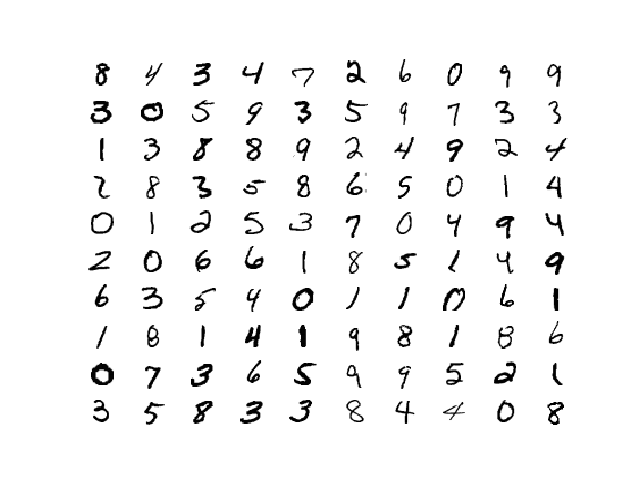 8 4 3 4 7 2 6 0 9 9
3 0 5 9 3 5 9 7 3 3
1 3 8 8 9 2 4 9 2 4
2 8 3 5 8 6 5 0 1 4
0 1 2 5 3 7 0 4 9 4
2 0 6 6 1 8 5 1 4 9
6 3 5 4 0 1 1 0 6 1
1 8 1 4 1 9 8 1 8 6
0 7 3 6 5 9 9 5 2 1
3 5 8 3 3 8 4 4 0 8